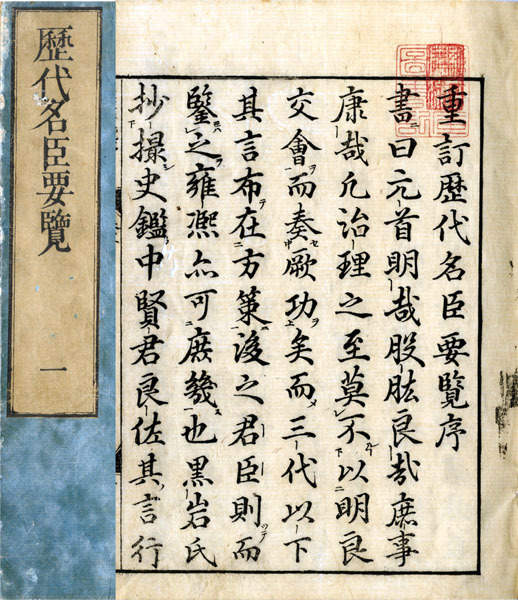 歷代名臣要覽
一
重訂歴代名臣要覽序
書曰元首明哉股肱良哉庶事
康哉凡治理之至莫不以明良
交會而奏厥功矣而三代以下
其言布在方策後之君臣則而
鑒之雍凞亦可庶幾也黒岩氏
抄撮史鑑中賢君良佐其言行